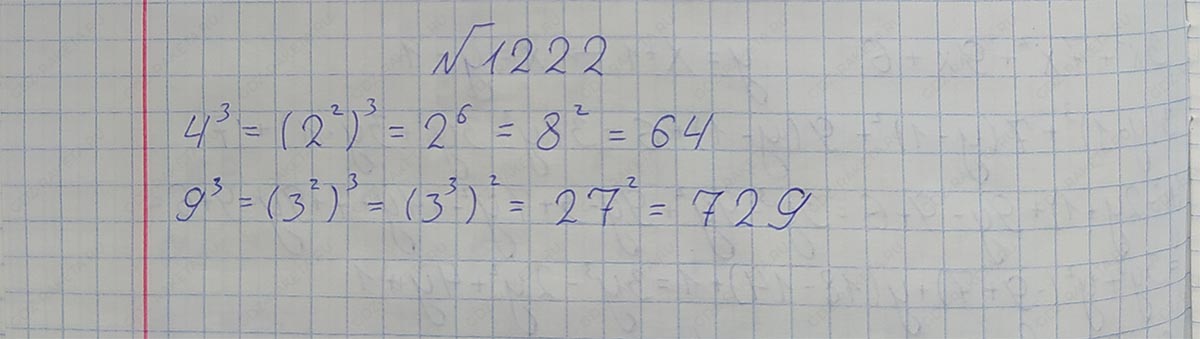 √1222
4³ = (2²)³ = 2⁶ = 8² = 64
9³ = (3²)³ = (3³)² = 27² = 729